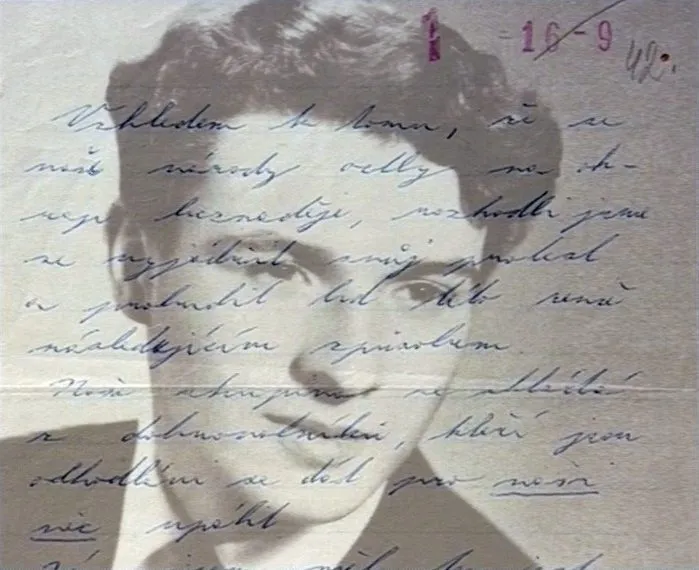 1 -16-9
42.
Vzhledem k tomu, že se
naše národy octly na ok-
raji beznaděje, rozhodli jsme
se vyjádřit svůj protest
a probudit lid této země
následujícím způsobem
Naše skupina se skládá
z dobrovolníků, kteří jsou
odhodláni se dát pro naši
věc upálit